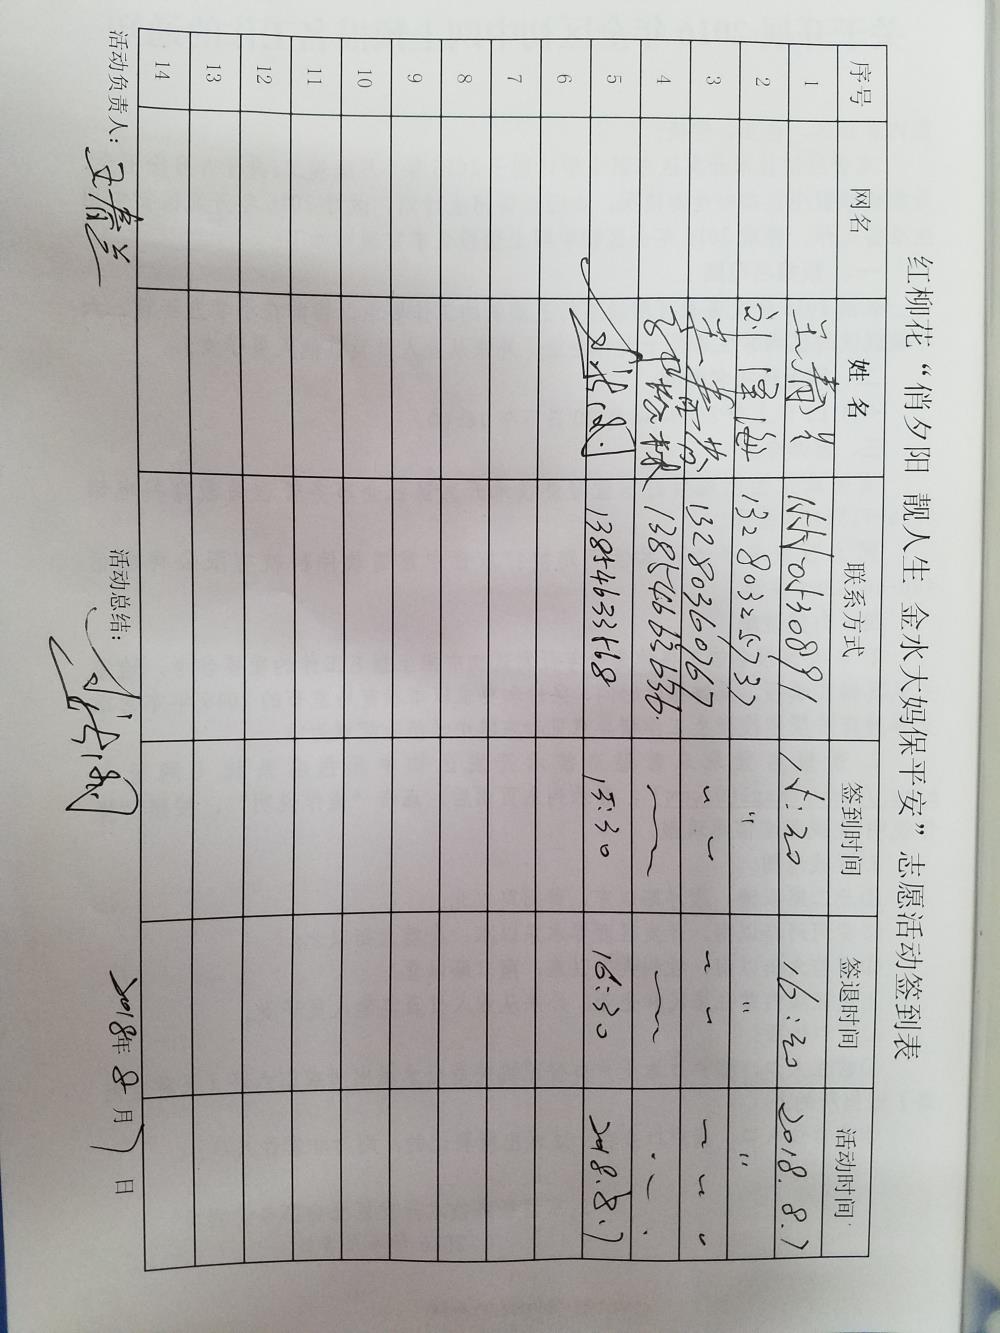 红柳花“俏夕阳 靓人生 金水大妈保平安”志愿活动签到表
序号 网名 姓 名 联系方式 签到时间 签退时间 活动时间
1 15:30 16:30 2018.8.7
2 刘泽海 13280325737 〃 〃 〃
3 13280360767 〃 〃 〃
4 13854663636
5 13854633568 15:30 16:30 2018.8.7
6
7
8
9
10
11
12
13
14
活动负责人: 王春兰 活动总结: 2018年 8 月 7 日